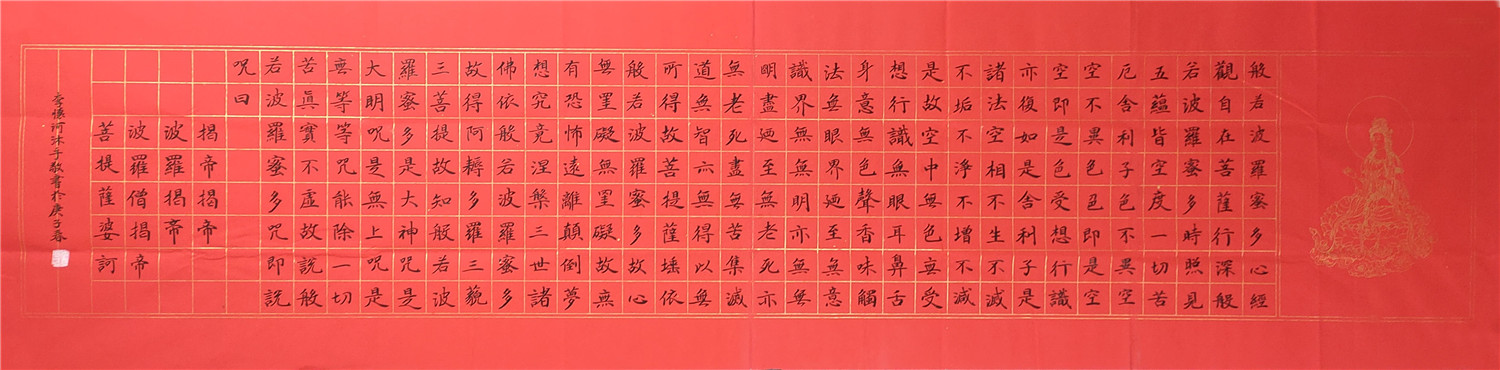 般若波羅蜜多心經
觀自在菩薩行深般
若波羅蜜多時照見
五蘊皆空度一切苦
厄舍利子色不異空
空不異色色即是空
空即是色受想行識
亦復如是舍利子是
諸法空相不生不滅
不垢不淨不增不減
是故空中無色無受
想行識無眼耳鼻舌
身意無色聲香味觸
法無眼界廼至無意
識界無無明亦無無
明盡廼至無老死亦
無老死盡無苦集滅
道無智亦無得以無
所得故菩提薩埵依
般若波羅蜜多故心
無罣礙無罣礙故無
有恐怖遠離顛倒夢
想究竟涅槃三世諸
佛依般若波羅蜜多
故得阿耨多羅三藐
三菩提故知般若波
羅蜜多是大神咒是
大明咒是無上咒是
無等等咒能除一切
苦真實不虛故說般
若波羅蜜多咒即說
咒曰
揭帝揭帝
波羅揭帝
波羅僧揭帝
菩提薩婆訶
李訶沐手敬書於庚子春